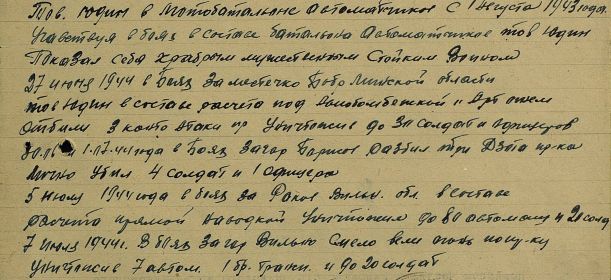 Тов. Юдин в Мотобатальоне автоматчиков с 1 августа 1943 года.
Участвуя в боях в составе батальона автоматчиков тов Юдин
Показал себя храбрым мужественным стойким воином
27 июня 1944 в боях за местечко Бобр Минской области
тов Юдин в составе расчета под и арт огнем
отбили 3 контр атаки пр уничтожив до 30 солдат и офицеров
1.07.44 года в боях за гор Борисов разбил три Дзота пр-ка
Лично убил 4 солдат и 1 офицера
5 июля 1944 года в боях за Раков обл. в составе
расчета прямой наводкой уничтожил до 80 автомашин и 20 солд
7 июля 1944г. В боях за гор Вильно смело вел огонь по пр-ку
уничтожив 7 автом. 1 бр. трансп. и до 20 солдат